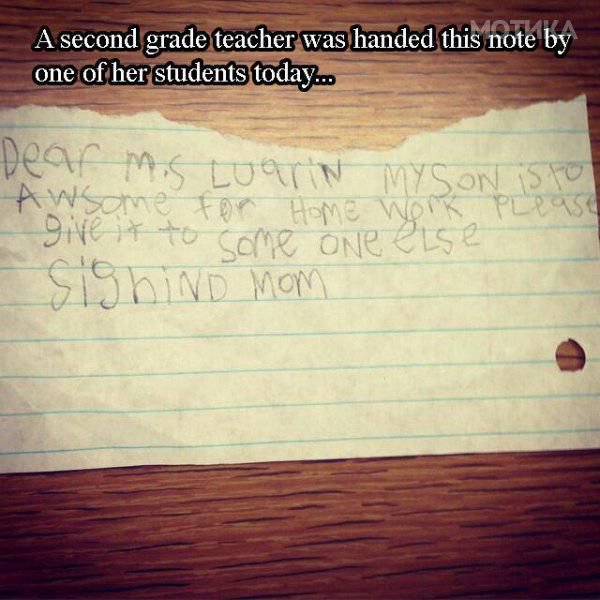 МОТИКА
A second grade teacher was handed this note by
one of her students today...
Dear m.s Lugrin my son is to
Awsome for Home work Please
give it to some one else
Sighind mom